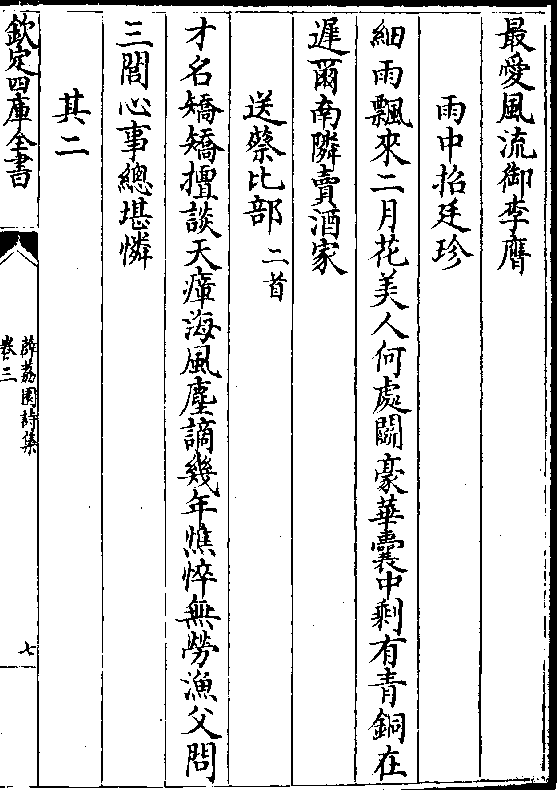 最愛風流御李膺
雨中招廷珍
細雨飄來二月花美人何處鬭豪華囊中剩有青銅在
遲爾南隣賣酒家
送蔡比部二首
才名矯矯擅談天瘴海風塵謫幾年憔悴無勞漁父問
三閭心事總堪憐
其二
欽定四庫全書
薜荔園詩集
卷三
七